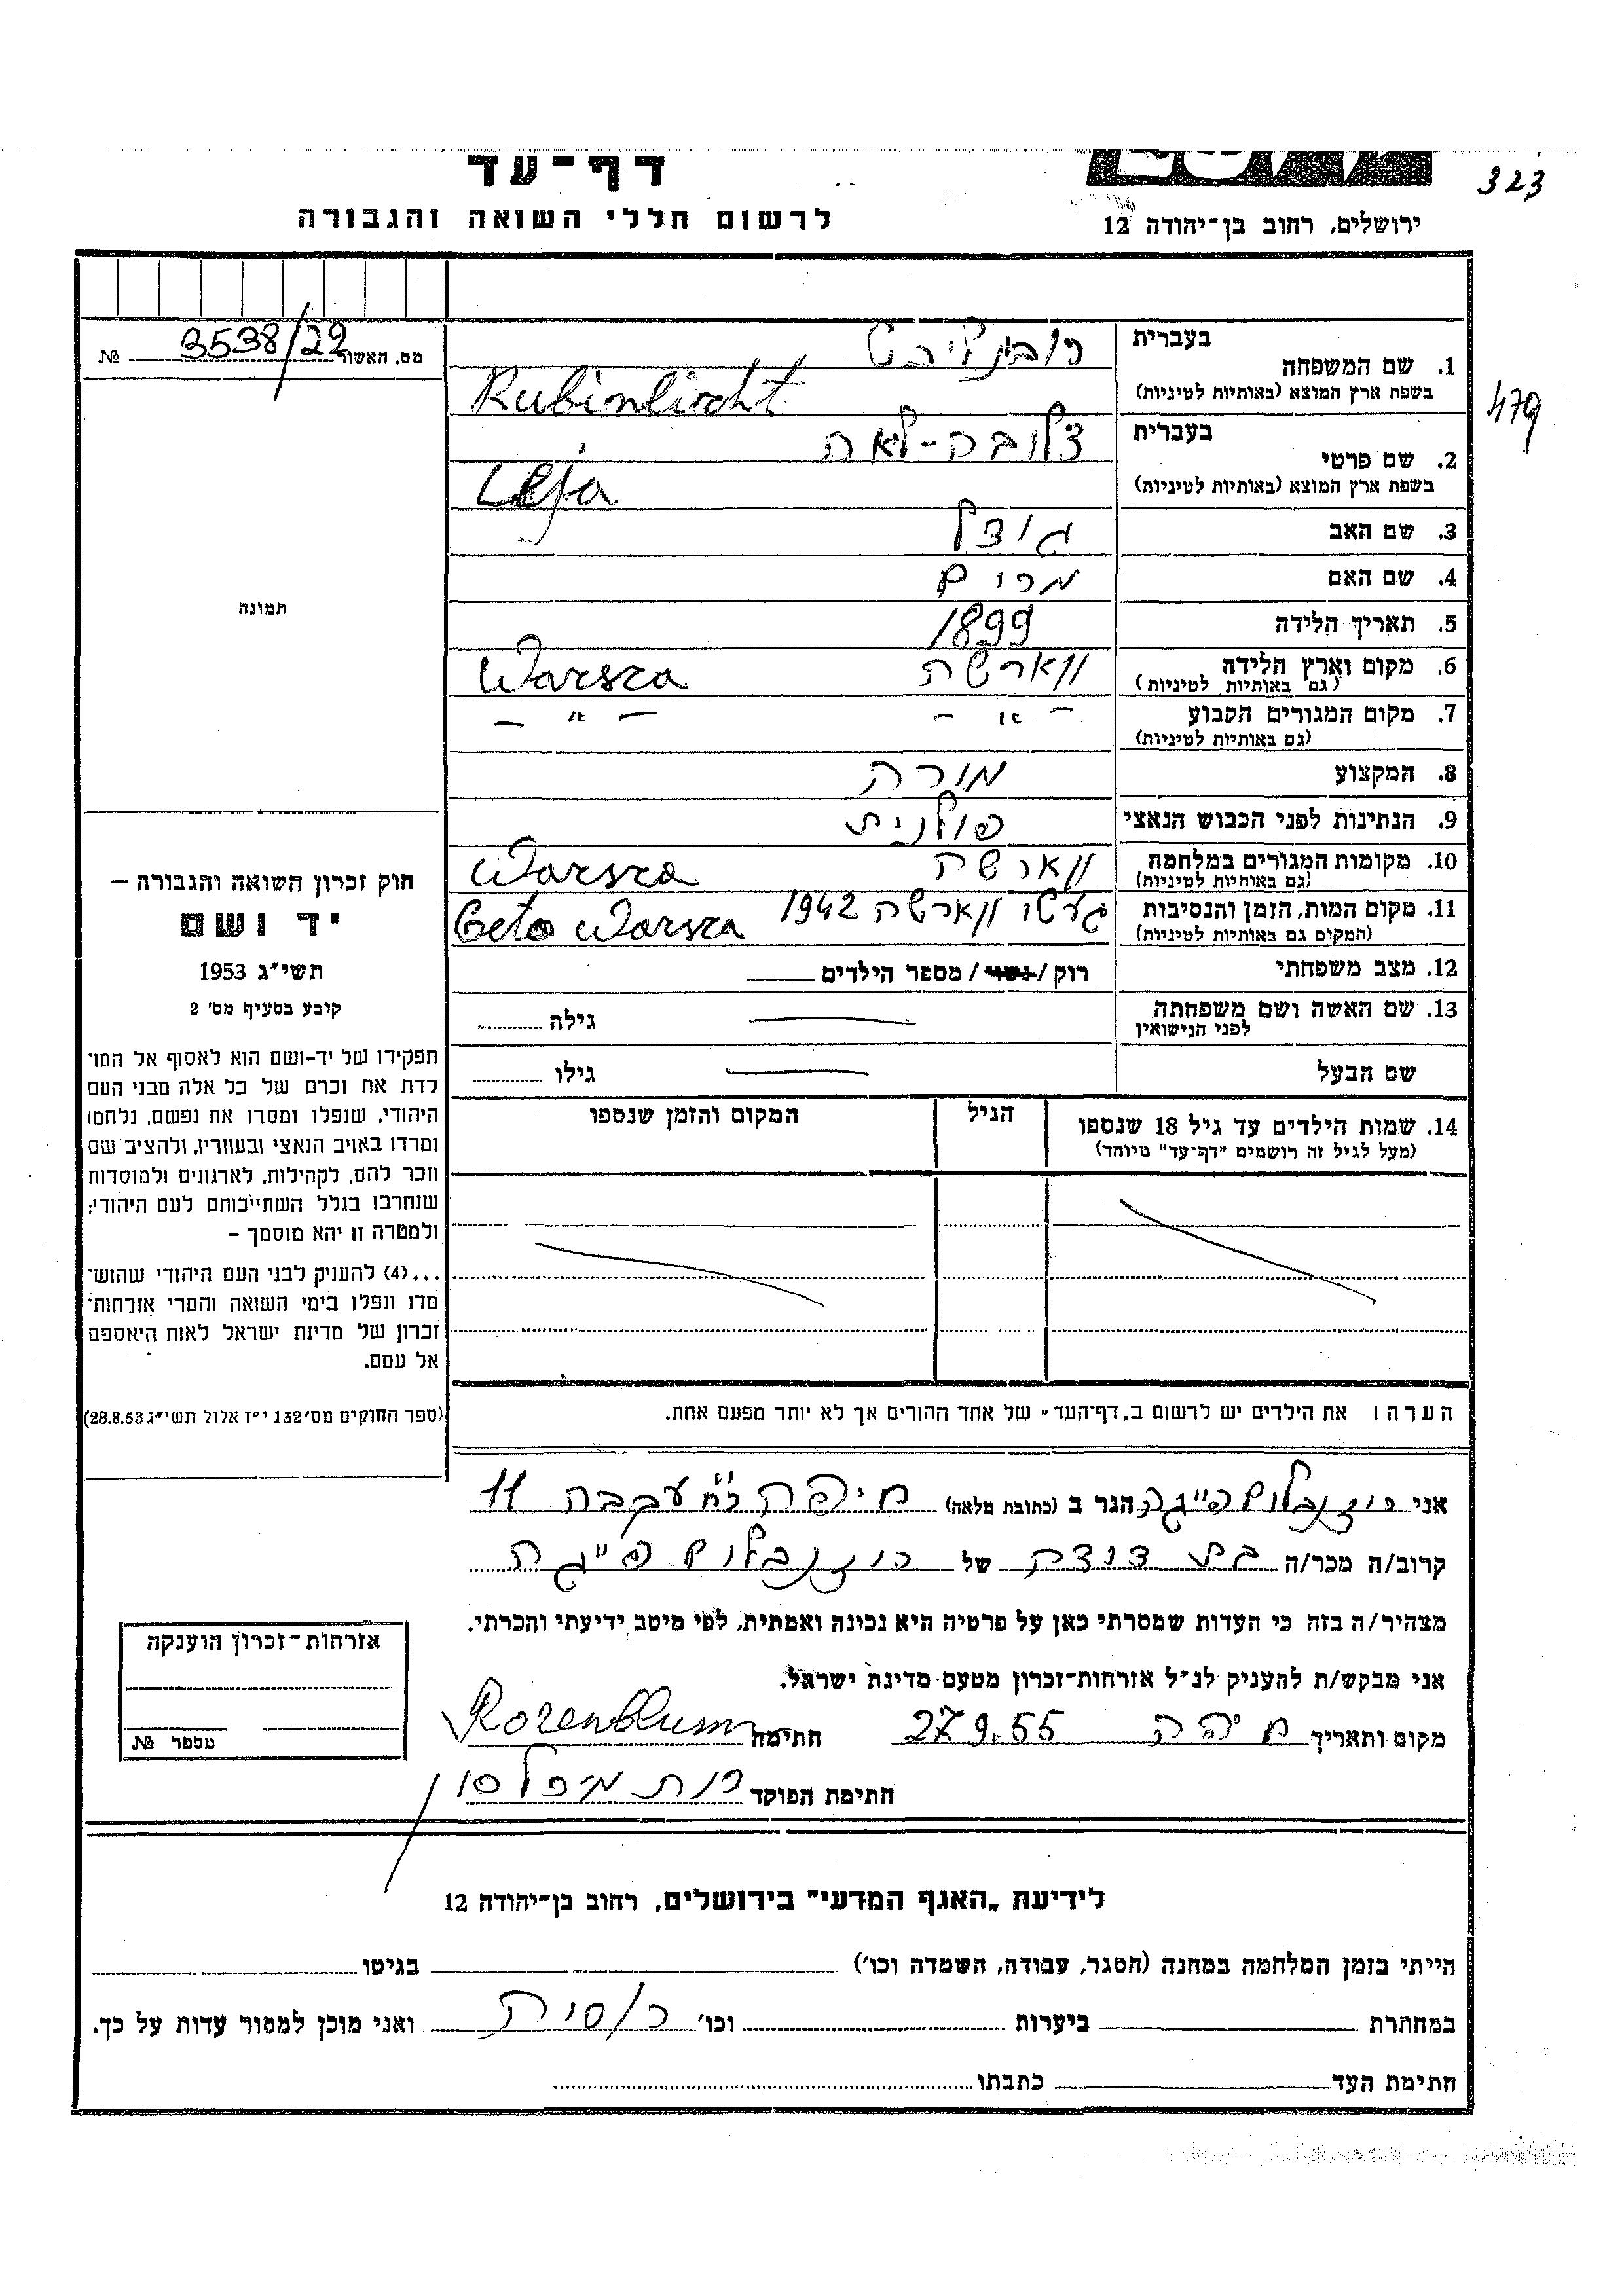 323
דף-עד
לרשום חללי השואה והגבורה
ירושלים, רחוב בן-יהודה 12
מס. האשור 3538/22 №
479
1. שם המשפחה בעברית רובינליכט
בשפת ארץ המוצא (באותיות לטיניות) Rubinlicht
2. שם פרטי בעברית צלובה-לאה
בשפת ארץ המוצא (באותיות לטיניות) Leja
3. שם האב גוצל
4. שם האם מרים
תמונה
5. תאריך הלידה 1899
6. מקום וארץ הלידה ווארשה Warsza
(גם באותיות לטיניות)
7. מקום המגורים הקבוע – " – – " –
(גם באותיות לטיניות)
8. המקצוע מורה
9. הנתינות לפני הכבוש הנאצי פולנית
10. מקומות המגורים במלחמה ווארשה Warsza
(גם באותיות לטיניות)
11. מקום המות, הזמן והנסיבות געטו ווארשה 1942 Geto Warsza
(המקום גם באותיות לטיניות)
12. מצב משפחתי רוק / נשוי / מספר הילדים
13. שם האשה ושם משפחתה גילה
לפני הנישואין
שם הבעל גילו
14. שמות הילדים עד גיל 18 שנספו הגיל המקום והזמן שנספו
(מעל לגיל זה רושמים "דף-עד" מיוחד)
חוק זכרון השואה והגבורה –
יד ושם
תשי"ג 1953
קובע בסעיף מס' 2
תפקידו של יד-ושם הוא לאסוף אל המו־
לדת את זכרם של כל אלה מבני העם
היהודי, שנפלו ומסרו את נפשם, נלחמו
ומרדו באויב הנאצי ובעוזריו, ולהציב שם
וזכר להם, לקהילות, לארגונים ולמוסדות
שנחרבו בגלל השתייכותם לעם היהודי;
ולמטרה זו יהא מוסמך –
...(4) להעניק לבני העם היהודי שהוש־
מדו ונפלו בימי השואה והמרי אזרחות־
זכרון של מדינת ישראל לאות היאספם
אל עמם.
(ספר החוקים מס' 132 י"ז אלול תשי"ג 28.8.53)
הערה: את הילדים יש לרשום ב„דף-העד" של אחד ההורים אך לא יותר מפעם אחת.
אני רוזנבלום פייגה הגר ב (כתובת מלאה) חיפה רח' עקבה 11
קרוב/ה מכר/ה בת דודה של רוזנבלום פייגה
מצהיר/ה בזה כי העדות שמסרתי כאן על פרטיה היא נכונה ואמתית, לפי מיטב ידיעתי והכרתי.
אני מבקש/ת להעניק לנ"ל אזרחות-זכרון מטעם מדינת ישראל.
מקום ותאריך חיפה 27.9.55 חתימה Rozenblum
חתימת הפוקד רות
אזרחות-זכרון הוענקה
מספר №
לידיעת „האגף המדעי" בירושלים, רחוב בן-יהודה 12
הייתי בזמן המלחמה במחנה (הסגר, עבודה, השמדה וכו') בגיטו
במחתרת ביערות וכו' רוסיה ואני מוכן למסור עדות על כך.
חתימת העד כתבתו